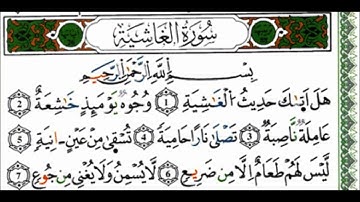 سُورَةُ الْغَاشِيَةِ
بِسْمِ اللَّهِ الرَّحْمَٰنِ الرَّحِيمِ
هَلْ أَتَىٰكَ حَدِيثُ الْغَٰشِيَةِ 1 وُجُوهٌ يَوْمَئِذٍ خَٰشِعَةٌ 2
عَامِلَةٌ نَّاصِبَةٌ 3 تَصْلَىٰ نَارًا حَامِيَةً 4 تُسْقَىٰ مِنْ عَيْنٍ ءَانِيَةٍ 5
لَّيْسَ لَهُمْ طَعَامٌ إِلَّا مِن ضَرِيعٍ 6 لَّا يُسْمِنُ وَلَا يُغْنِي مِن جُوعٍ 7